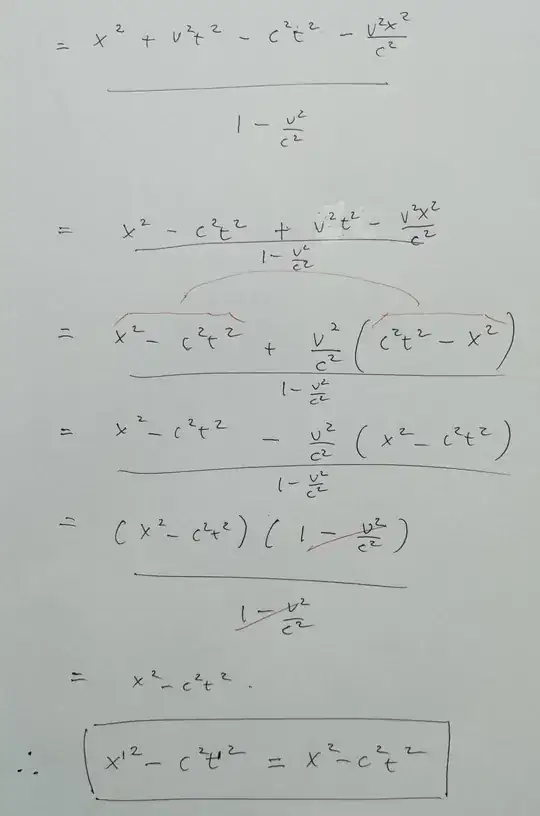 = x² + v²t² - c²t² - v²x²/c²
1 - v²/c²
= x² - c²t² + v²t² - v²x²/c²
1 - v²/c²
= x² - c²t² + v²/c² (c²t² - x²)
1 - v²/c²
= x² - c²t² - v²/c² (x² - c²t²)
1 - v²/c²
= (x² - c²t²) (1 - v²/c²)
1 - v²/c²
= x² - c²t² .
∴ x'² - c²t'² = x² - c²t²